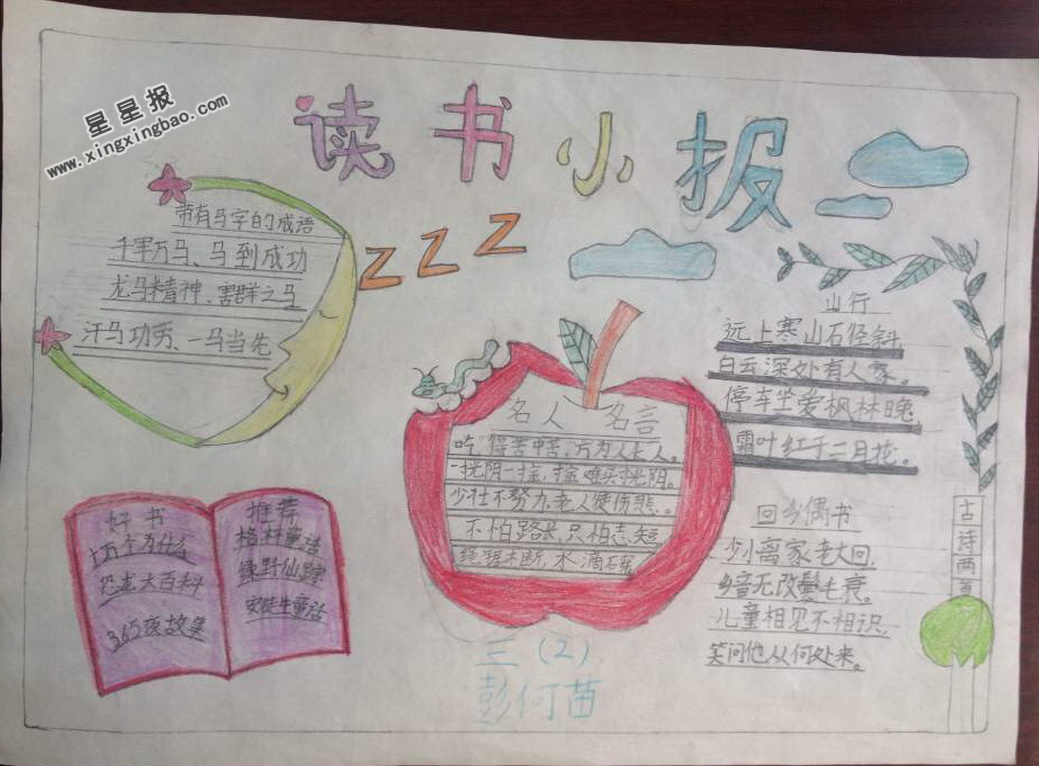 星星报
www.xingxingbao.com
读书小报
zzz
带有马字的成语
千军万马、马到成功
龙马精神、害群之马
汗马功劳、一马当先
名人名言
吃"得苦中苦,方为人上人。
一光阴一金,金难买光阴。
少壮不努力,老人使伤悲。
不怕路长,只怕志短
绳锯木断,水滴石穿
山行
远上寒山石径斜,
白云深处有人家。
停车坐爱枫林晚,
霜叶红于二月花。
回乡偶书
少小离家老大回,
乡音无改鬓毛衰。
儿童相见不相识,
笑问他从何处来。
古诗两首
好书
十万个为什么
恐龙大百科
365夜故事
推荐
格林童话
绿野仙踪
安徒生童话
三(2)
彭何苗